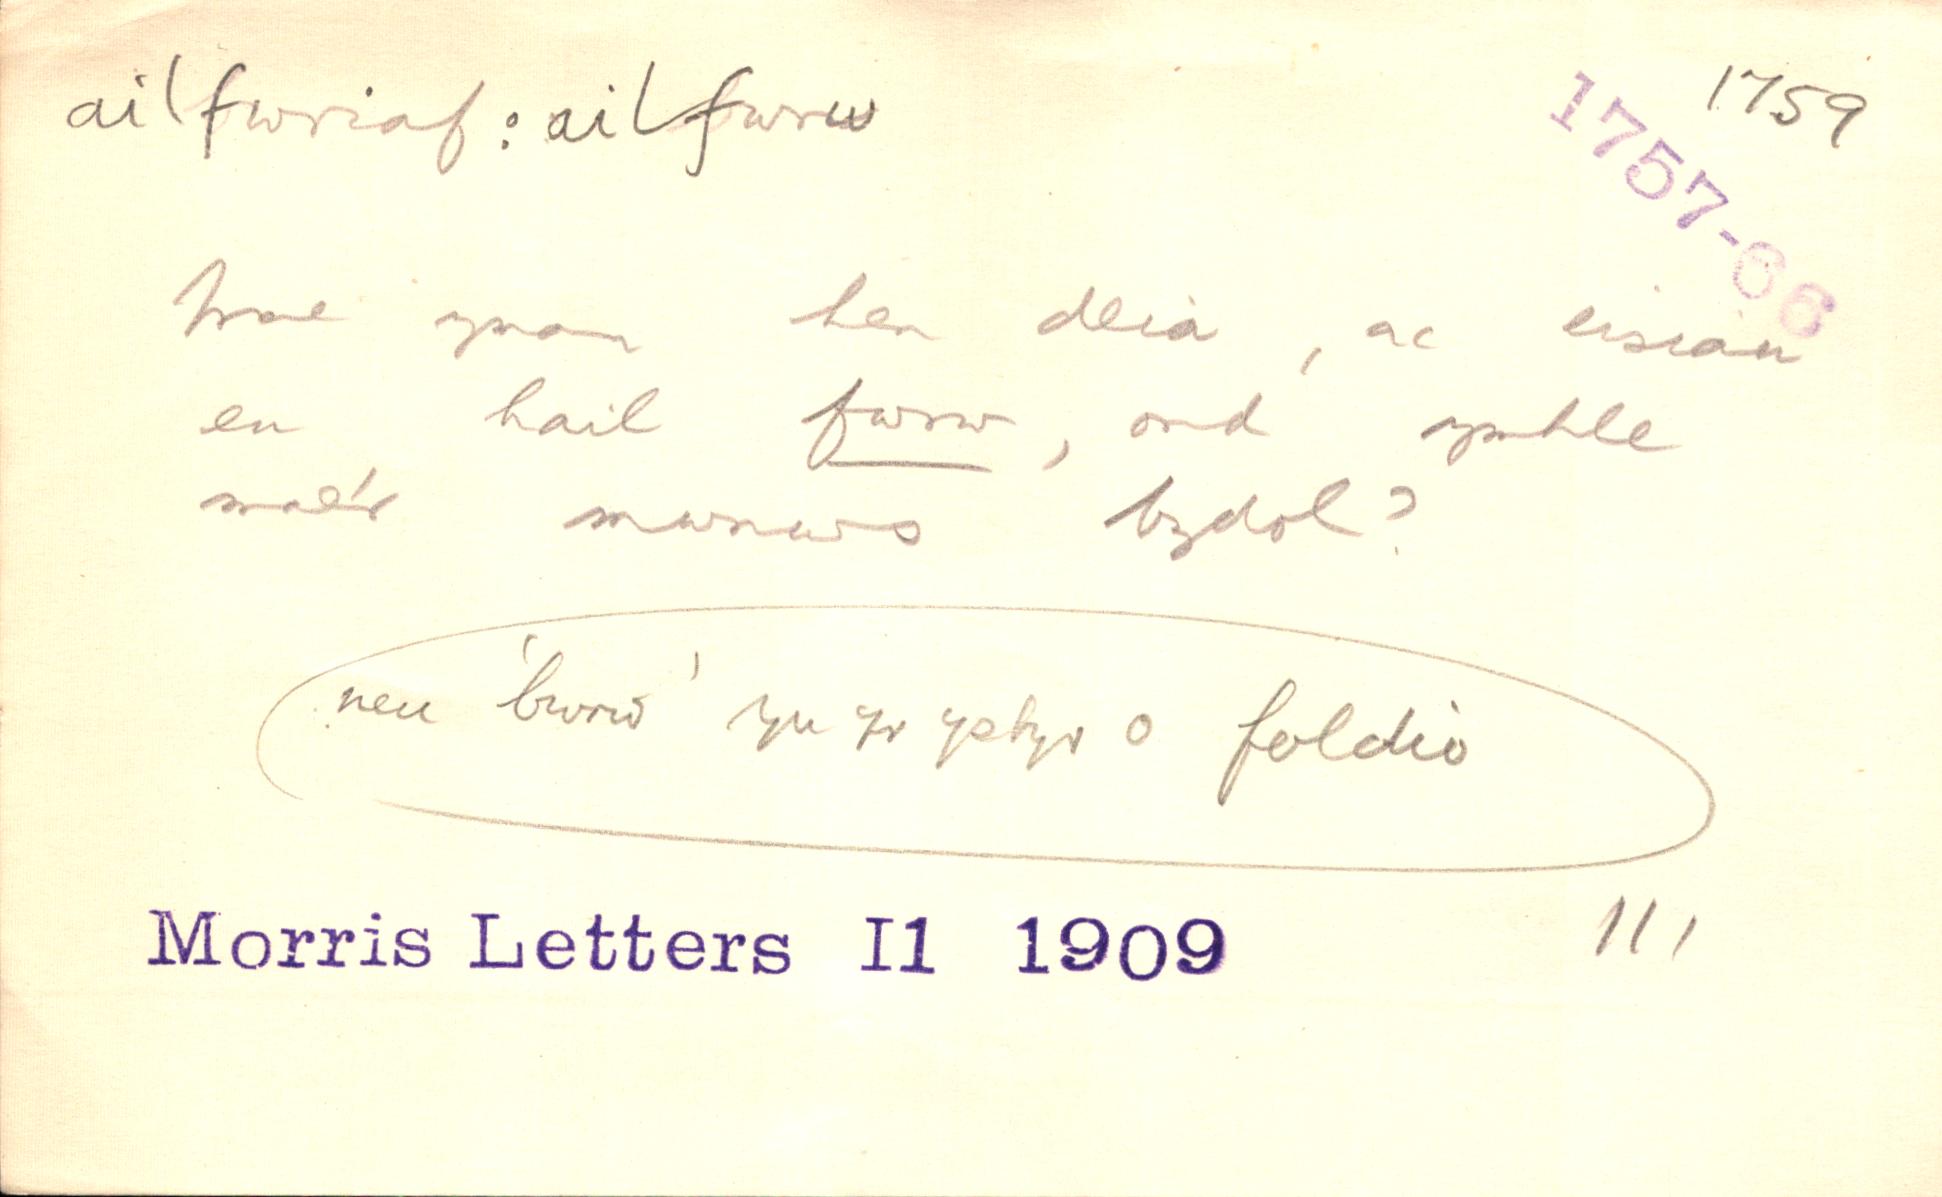 ailfwriaf : ailfwrw
1759
1757-66
Mae yman hen deia, ac eisiau
en hail fwrw, ond ymhle
mae'r mwnws bydol?
neu 'bwrw' yn yr ystyr o foldio
Morris Letters I1 1909
111